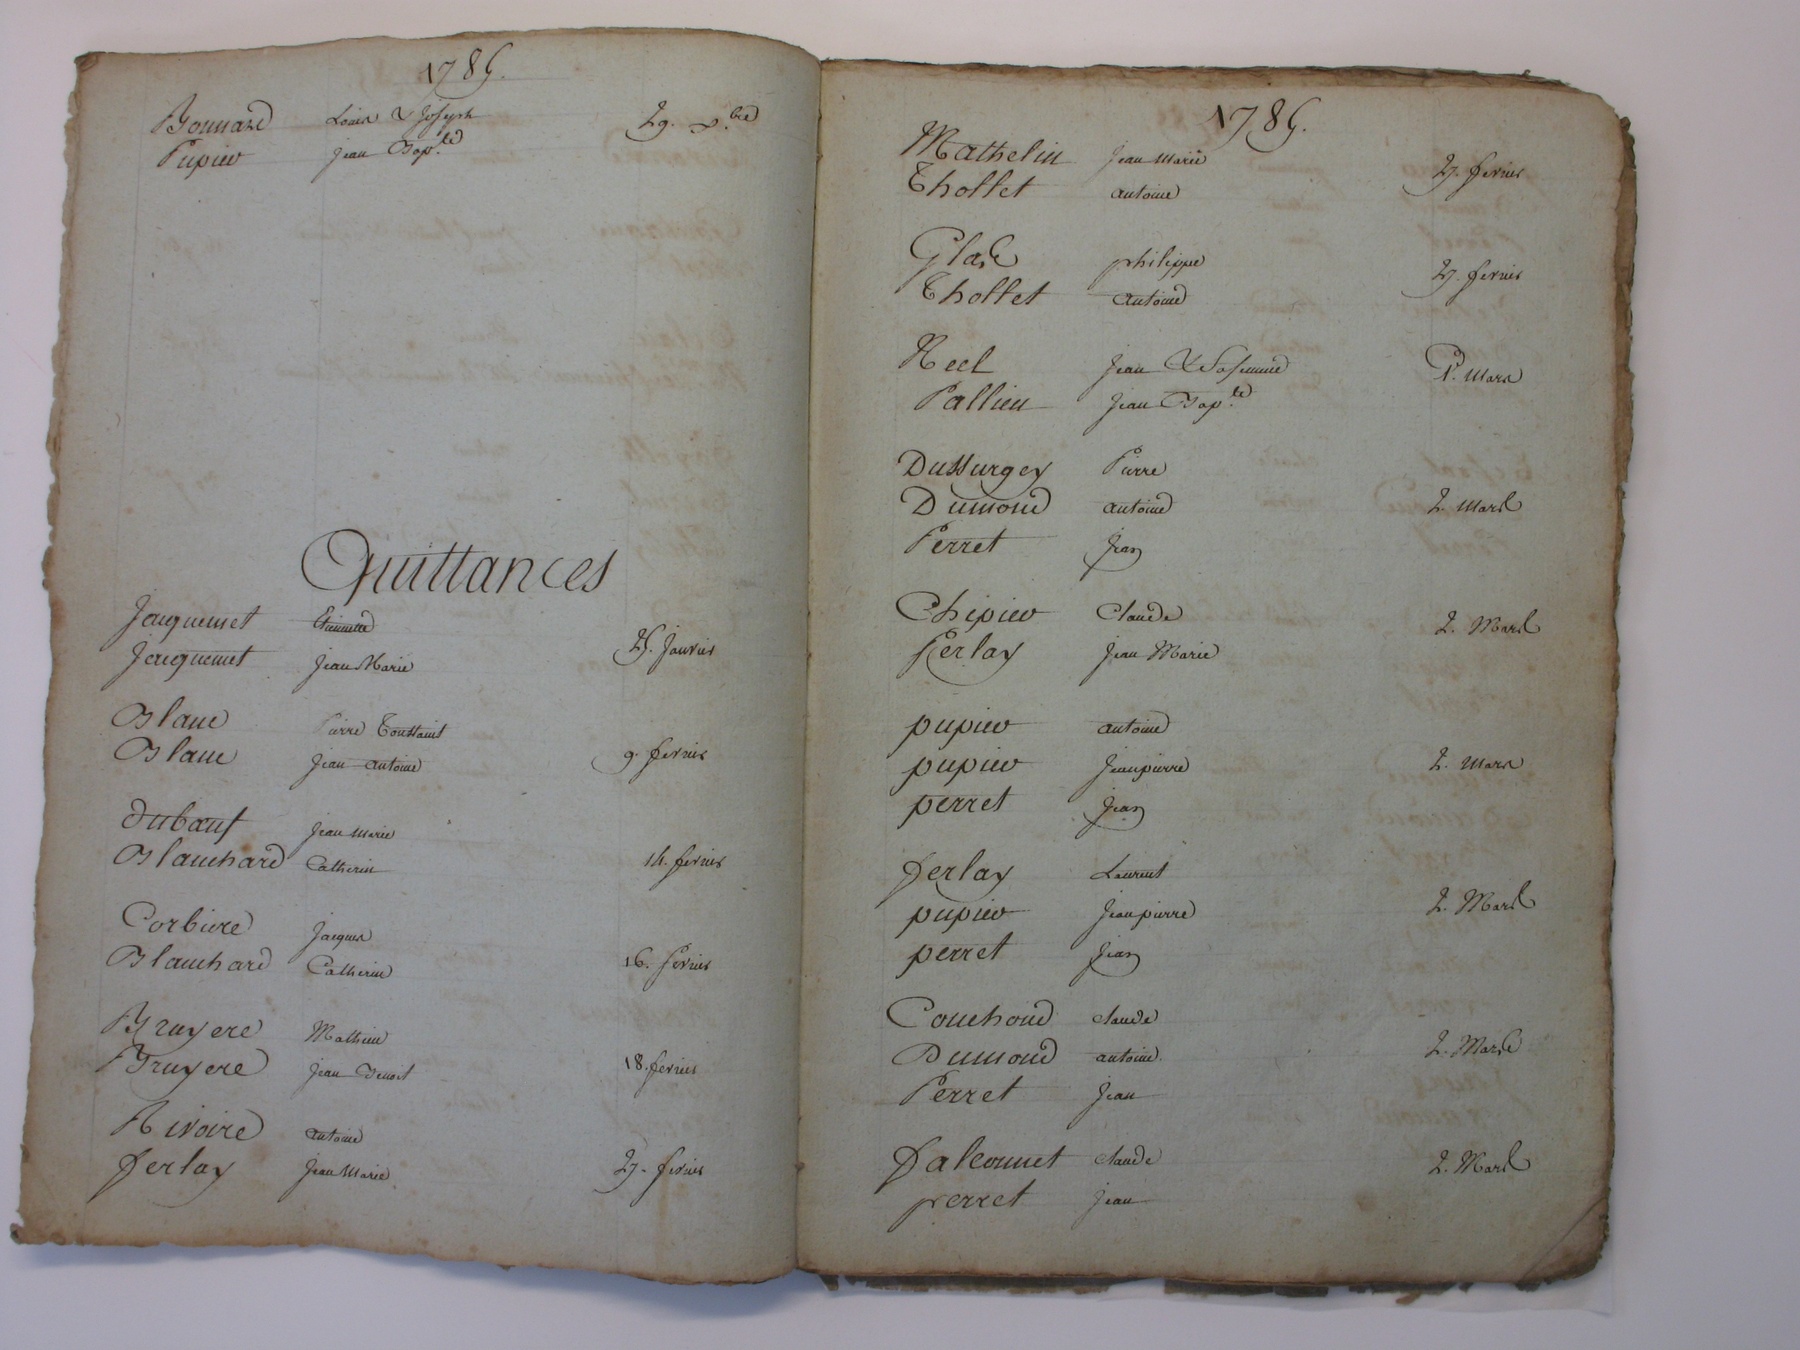 1785.
Bonnard Louis & Joseph 29. x.bre
Pupier Jean Bap.te
Quittances
Jacquemet Etiennette
Jacquemet Jean Marie 25. Janvier
Blanc Pierre Toussaint
Blanc Jean antoine 9. fevrier
Duboeuf Jean Marie
Blanchard Catherine 14. fevrier
Corbiere Jacques
Blanchard Catherine 16. fevrier
Bruyere Mathieu
Bruyere Jean Benoit 18. fevrier
Rivoire antoine
ferlay Jean Marie 27. fevrier
1785.
Mathelin Jean Marie 27. fevrier
Thollet antoine
philippe 27. fevrier
Thollet antoine
Neel Jean & 1.r Mars
Pallien Jean Bap.te
Dussurgey Pierre
Dumond antoine 2. Mars
Perret Jean
Chipier Claude 2. Mars
ferlay Jean Marie
pupier antoine
pupier Jean pierre 2. Mars
perret Jean
ferlay Laurent
pupier Jean pierre 2. Mars
perret Jean
Couchoud claude
Dumond antoine. 2. Mars
Perret Jean
falconnet claude 2. Mars
perret Jean